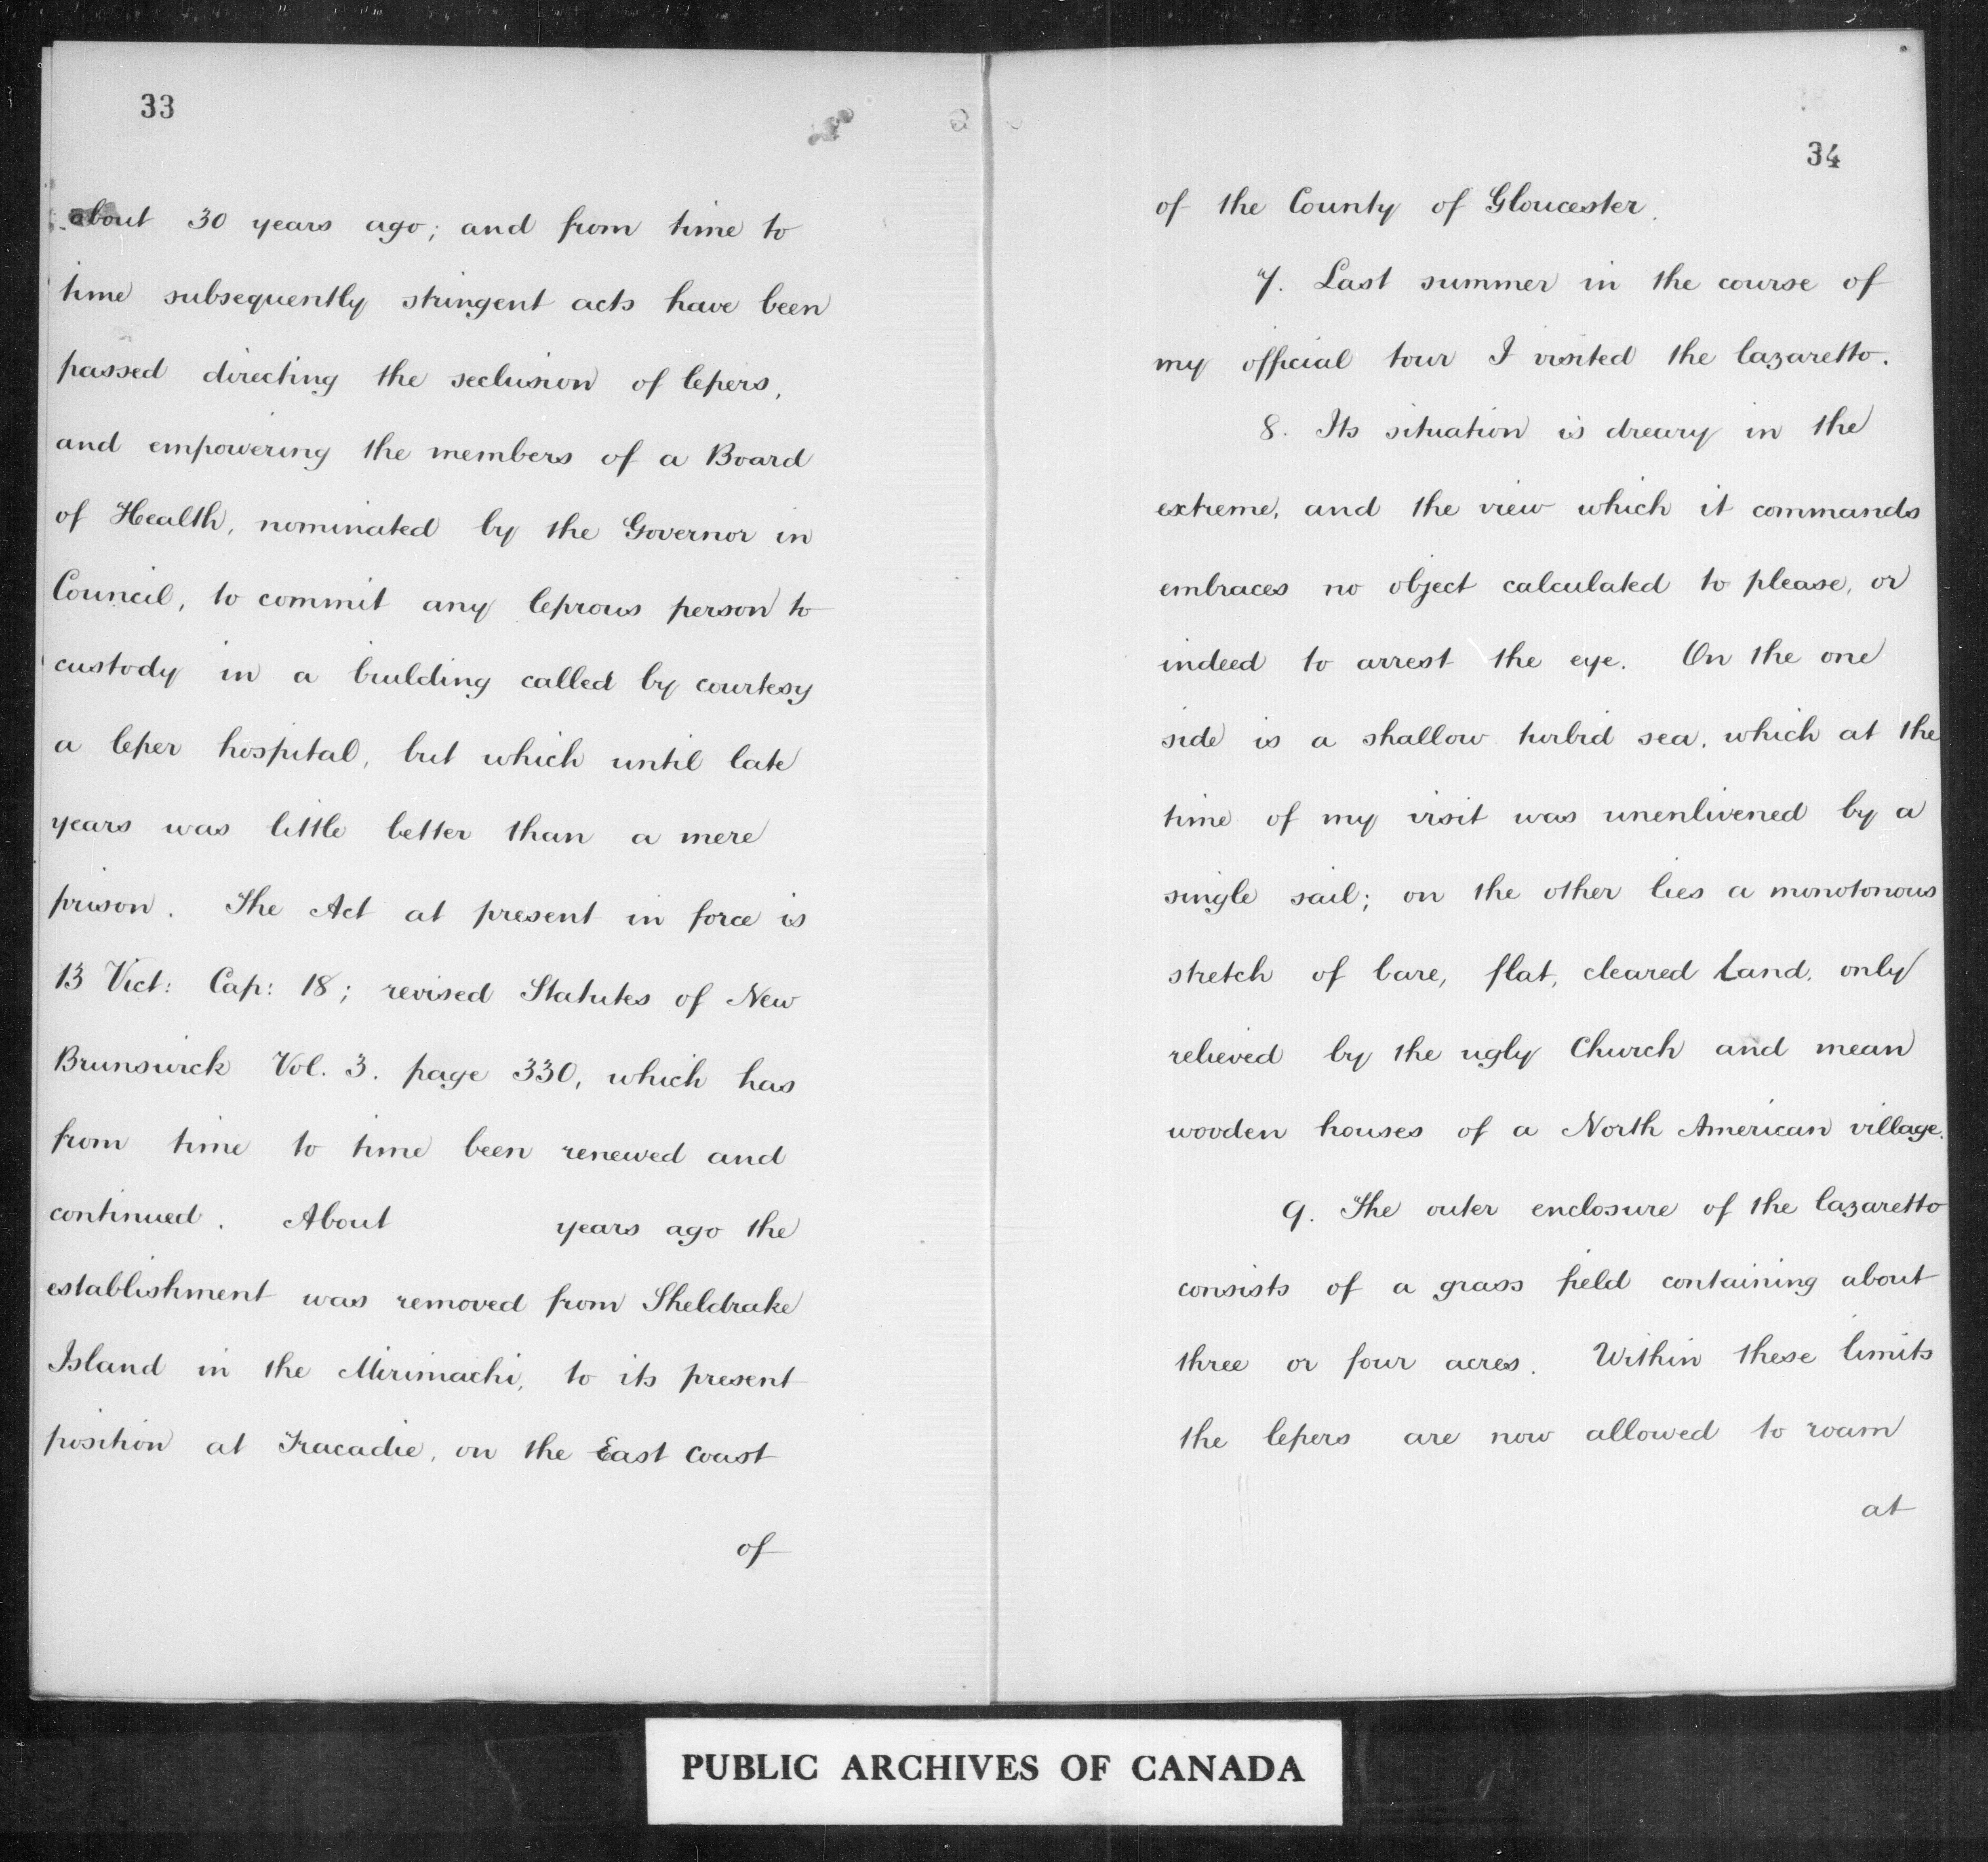 33
about 30 years ago; and from time to
time subsequently stringent acts have been
passed directing the seclusion of lepers,
and empowering the members of a Board
of Health, nominated by the Governor in
Council, to commit any leprous person to
custody in a building called by courtesy
a leper hospital, but which until late
years was little better than a mere
prison. The Act at present in force is
13 Vict: Cap: 18; revised Statutes of New
Brunswick Vol. 3. page 330, which has
from time to time been renewed and
continued. About years ago the
establishment was removed from Sheldrake
Island in the Mirimachi, to its present
position at Tracadie, on the East Coast
of
34
of the County of Gloucester.
7. Last summer in the course of
my official tour I visited the lazaretto.
8. Its situation is dreary in the
extreme, and the view which it commands
embraces no object calculated to please, or
indeed to arrest the eye. On the one
side is a shallow turbid sea, which at the
time of my visit was unenlivened by a
single sail; on the other lies a monotonous
stretch of bare, flat, cleared land, only
relieved by the ugly Church and mean
wooden houses of a North American village.
9. The outer enclosure of the lazaretto
consists of a grass field containing about
three or four acres. Within these limits
the lepers are now allowed to roam
at
PUBLIC ARCHIVES OF CANADA